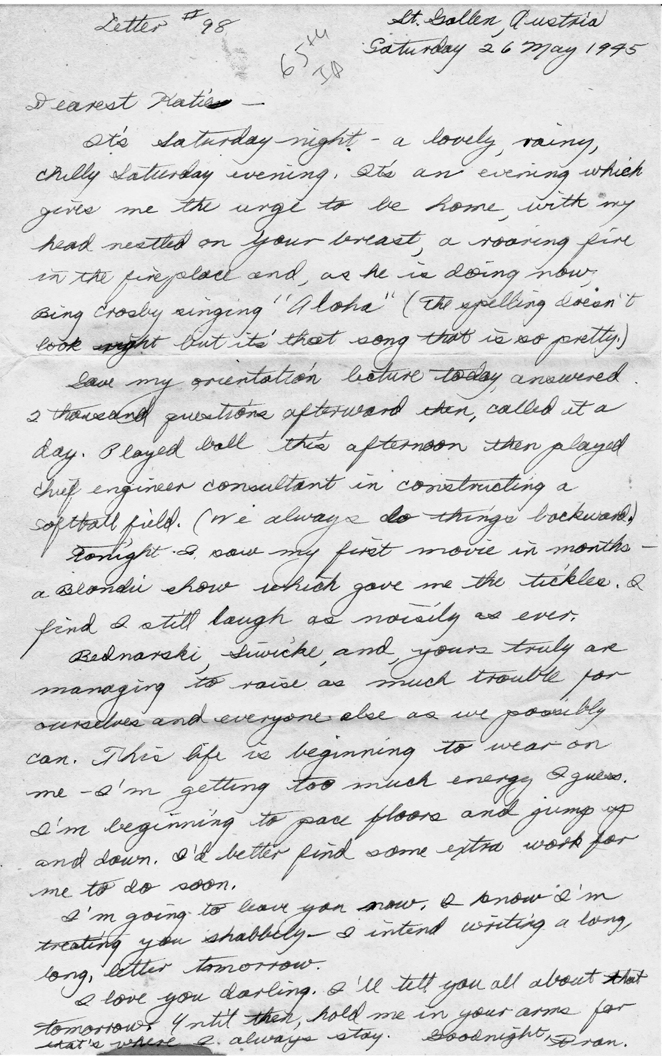 Letter #98
St. Gallen, Austria
65th
ID
Saturday 26 May 1945
Dearest Katie —
It's Saturday night - a lovely, rainy,
chilly Saturday evening. It's an evening which
gives me the urge to be home, with my
head nestled on your breast, a roaring fire
in the fireplace and, as he is doing now,
Bing Crosby singing "Aloha" (The spelling doesn't
look right but it's that song that is so pretty.)
Gave my orientation lecture today, answered
2 thousand questions afterward then, called it a
day. Played ball this afternoon then played
chief engineer consultant in constructing a
softball field. (We always do things backward.)
Tonight I saw my first movie in months -
a Blondie show which gave me the tickles. I
find I still laugh as noisily as ever.
Bednarski, Siwicke, and, yours truly are
managing to raise as much trouble for
ourselves and everyone else as we possibly
can. This life is beginning to wear on
me - I'm getting too much energy I guess.
I'm beginning to pace floors and jump up
and down. I'd better find some extra work for
me to do soon.
I'm going to leave you now. I know I'm
treating you shabbily - I intend writing a long,
long, letter tomorrow.
I love you darling. I'll tell you all about that
tomorrow. Until then, hold me in your arms for
that's where I always stay. Goodnight, Bran.